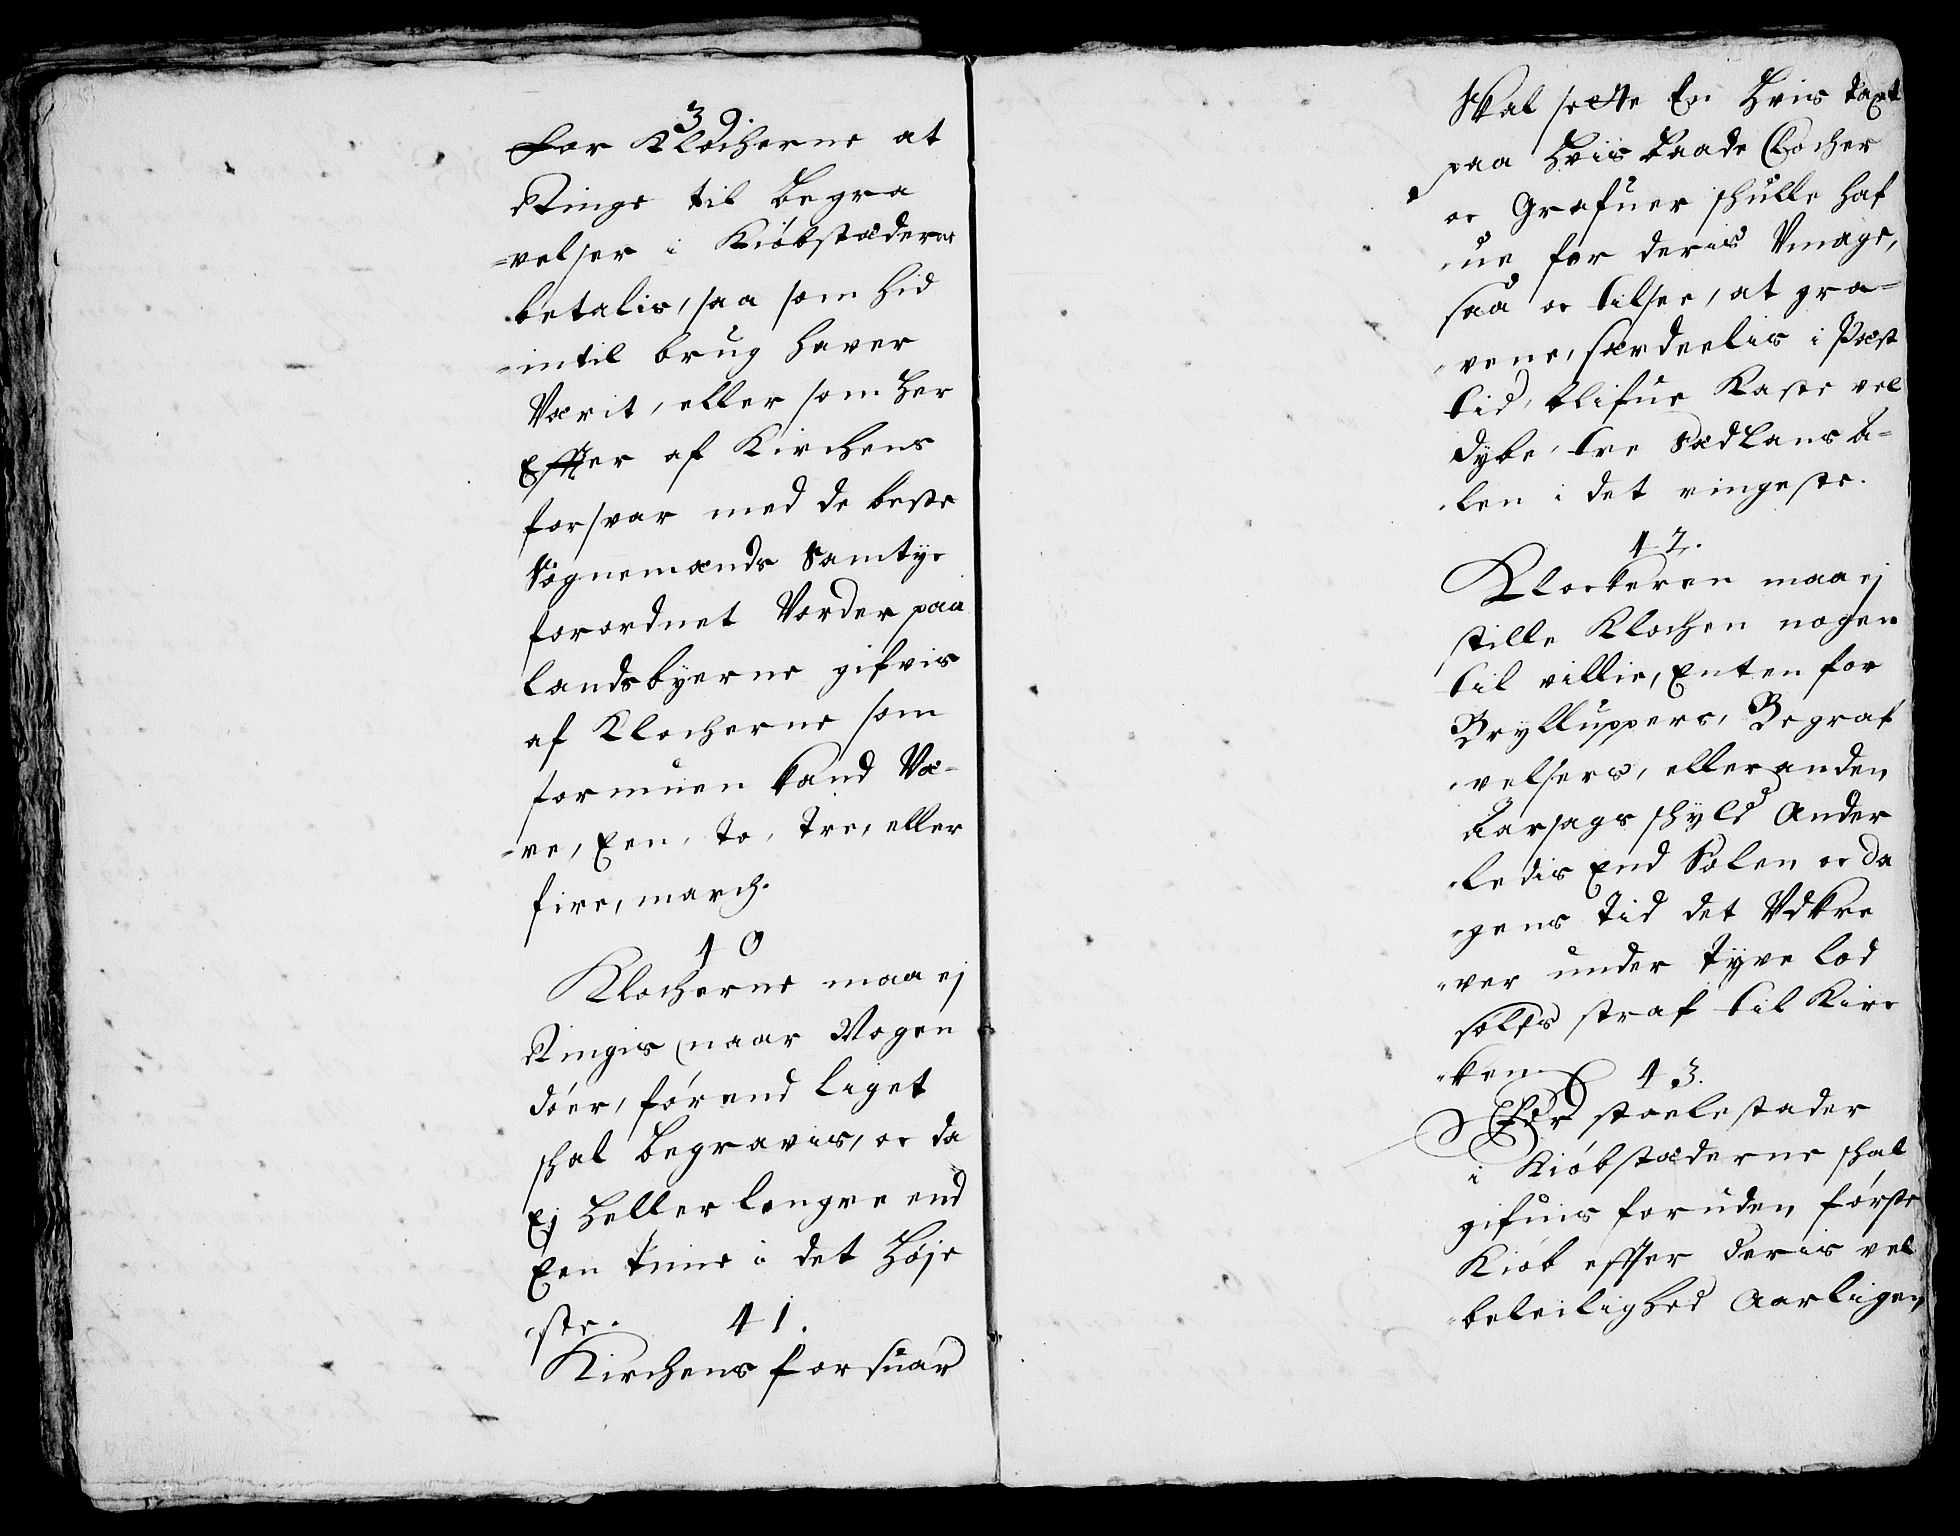 39.
For Klocherne at
Ringe til Begra
=velser i Kiøbstæderne
betalis, saa som hid
=indtil brug haver
Værit, eller som her
Effter af Kirchens
forsvar med de beste
Sognemænds Samtyche
forordnet Vorder paa
landsbyerne gifvis
af Klocherne som
formuen kand Væ-
=re, Een, To, Tre, eller
fire, march.
40
Klocherne maa ej
Ringis naar Nogen
døer, førend liget
skal begravis, oc da
Ej heller lengre end
Een time i det høje
ste. 41.
Kirchens forsuar
skal sætte En hvis taxt
paa hvis baade Clocher
oc Grafuer skulle haf
ue for deris Vmage,
saa oc tilsee, at gra=
vene, særdeelis i Pest
tid, blifue Kaste vel
dybe, tre Sædlans A=
len i det ringeste.
42.
Klockeren maa ej
stille Klochen nogen
til villie, Enten for
Brylluppers, Begraf
velsers, eller anden
Aarsags skyld Ander
ledis End Solen oc Da
gens Tid det Vdkre
ver under Tyve lod
sølfs straf til Kirc
ken. 43.
For stoelestader
i Kiøbstæderne skal
gifuis foruden første
Kiøb effter deris vel
beleilighed Aarligen